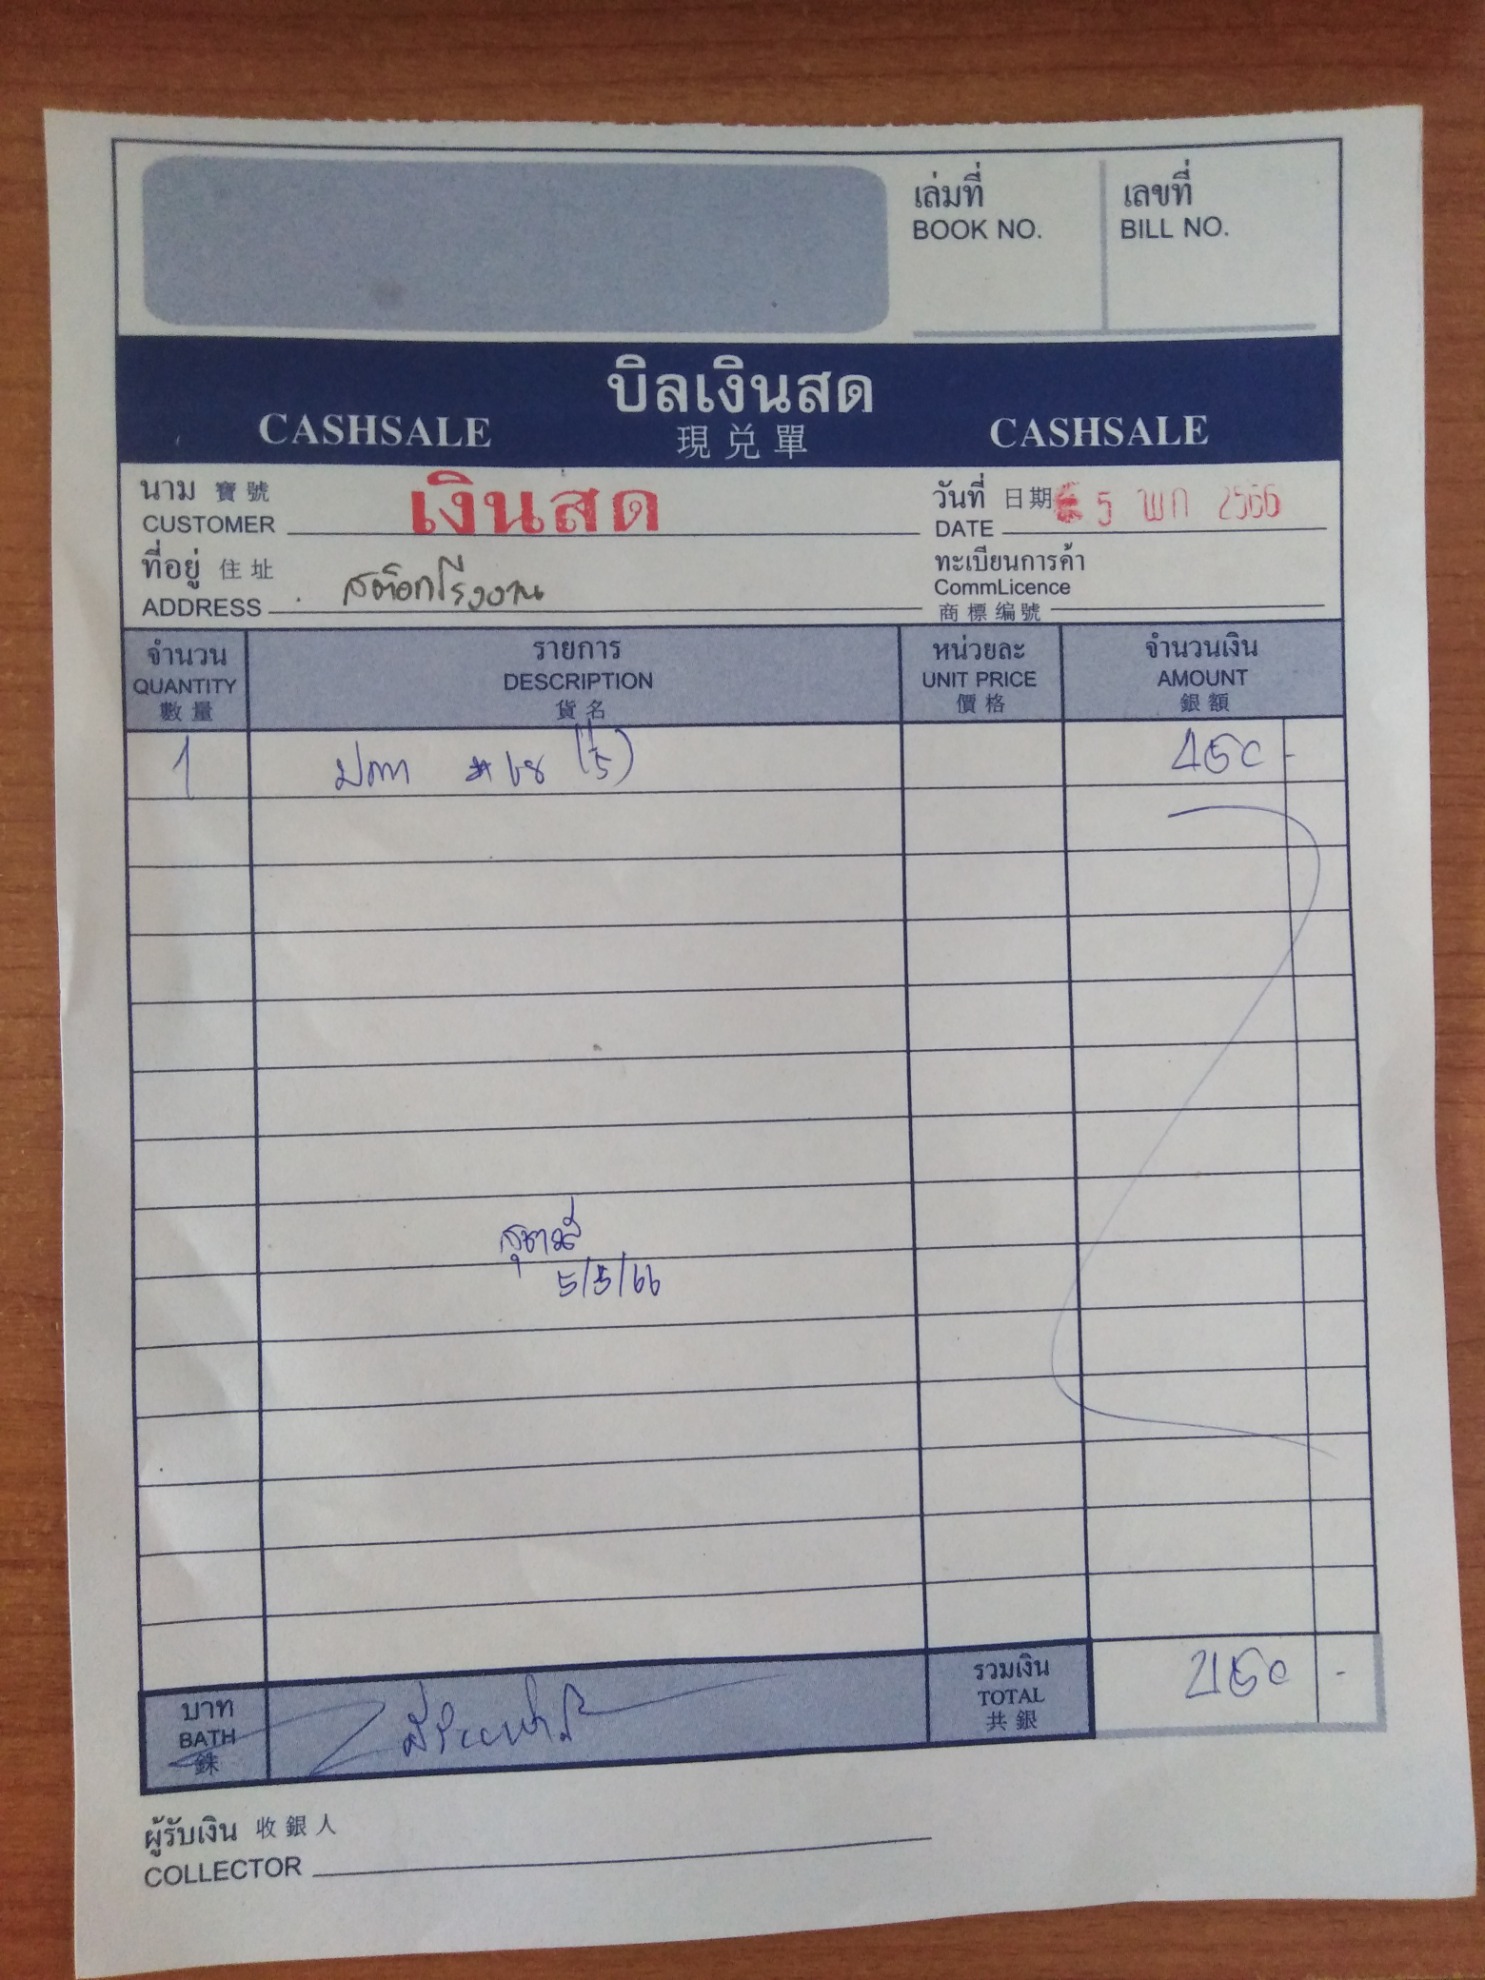 เล่มที่ เลขที่
BOOK NO. BILL NO.
บิลเงินสด
CASHSALE 現兑單 CASHSALE
นาม 寶號 เงินสด วันที่ 日期 5 พค 2566
CUSTOMER DATE
ที่อยู่ 住址 สต๊อกโรงงาน ทะเบียนการค้า
ADDRESS CommLicence
商標编號
จำนวน รายการ หน่วยละ จำนวนเงิน
QUANTITY DESCRIPTION UNIT PRICE AMOUNT
數量 貨名 價格 銀額
1 450 -
5/5/66
บาท รวมเงิน 450 -
BATH TOTAL
銖 共銀
ผู้รับเงิน 收銀人
COLLECTOR